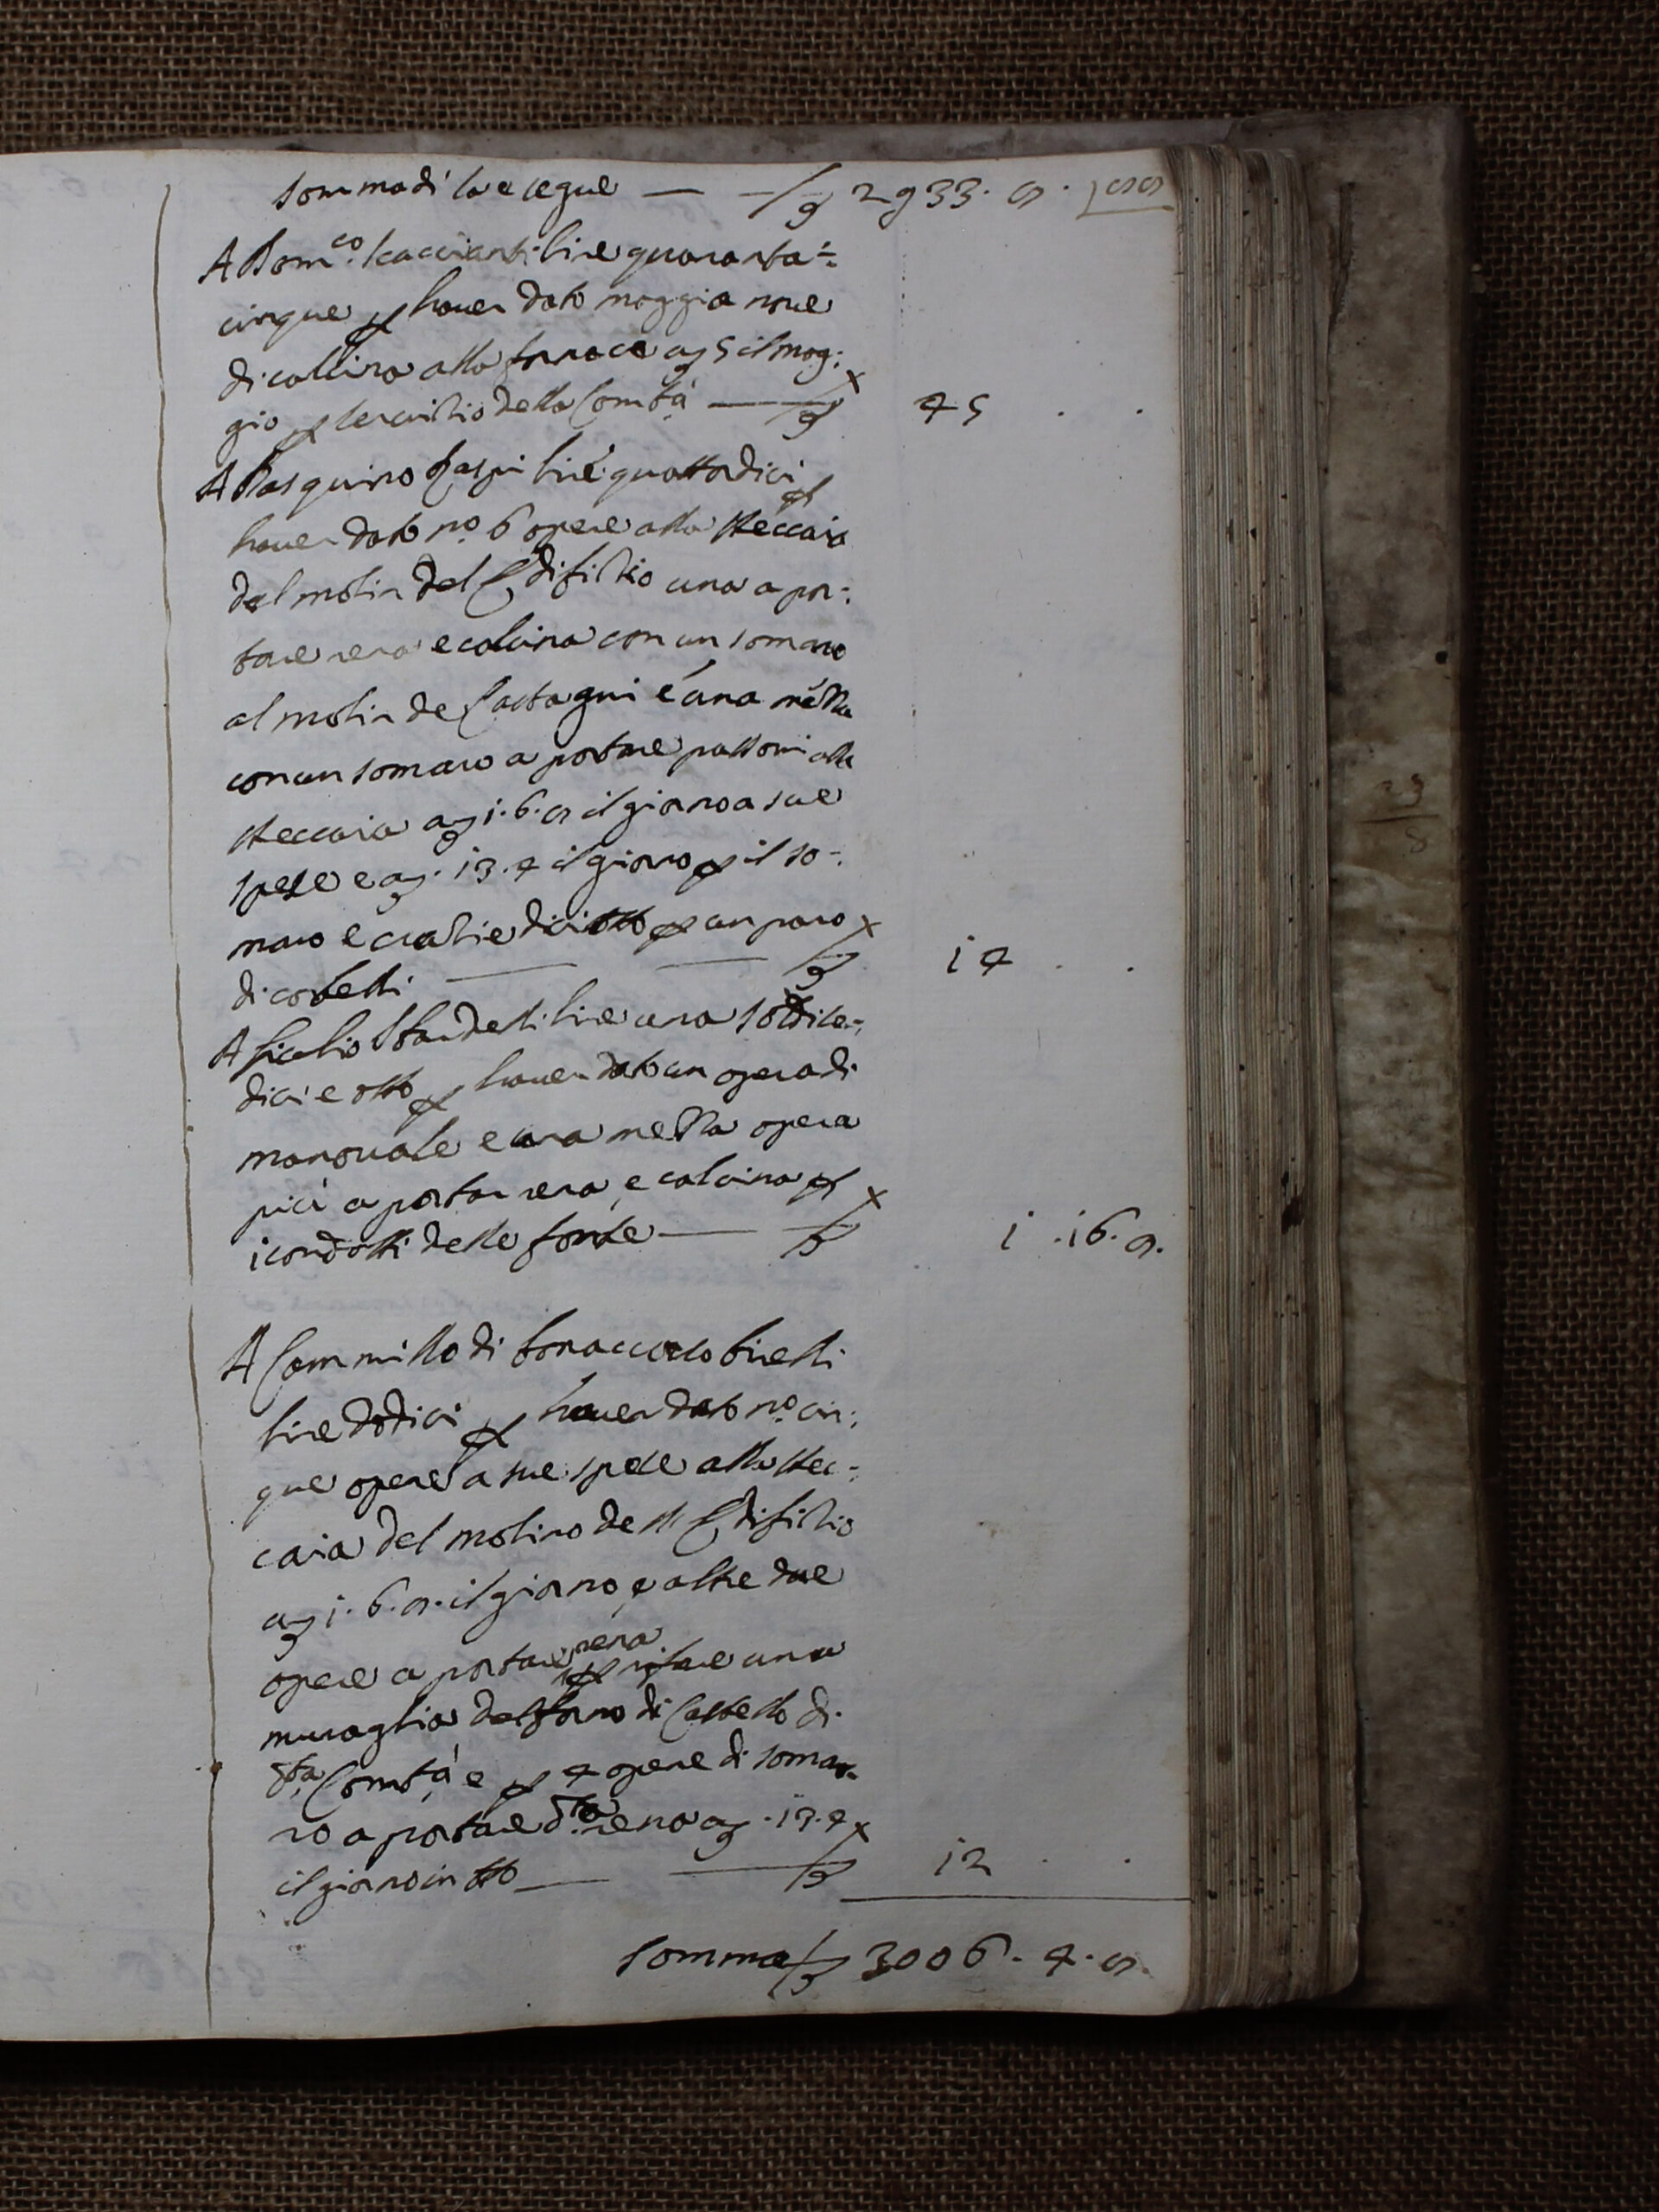 Somma di la e segue — £ 2933. 8. 
A Dom.co Caccianti lire quaranta=
cinque p hauer dato moggia noue
di calcina alla fornace a £ 5 il mog:
gio p seruitio della Com.tà — £ 45 . .
A Pasquino Gaspi lire quattordici p
hauer dato n.o 6 opere alla steccaia
del molin del Edifitio una a por:
tare rena e calcina con un somaro
al molin de Castagni e una mezza
con un somaro a portare pattoni alla
steccaia a £ 1. 6. 8 il giorno a sue
spese e a £ . 13. 4 il giorno p il so=
maro e cratie diciotto p un paro
di corbelli — £ 14 . .
A Lire una soldi se=
dici e otto p hauer dato un opera di
manouale e una mezza opera
pici a portar rena e calcina p
i condotti delle fonte — £ 1 . 16. 8.
A Cammillo di Bonaccorso Birelli
lire dodici p hauer dato n.o cin:
que opere a sue spese alla stec=
caia del molino dell Edifitio
a £ 1. 6. 8. il giorno e altre due
opere a portare rena p rifare una
muraglia del forno di Castello di
d.ta Com.tà e p 4 opere di somar=
ro a portare d.ta rena a £ . 13. 4
il giorno in tto — £ 12 . .
Somma £ 3006. 4. 8.